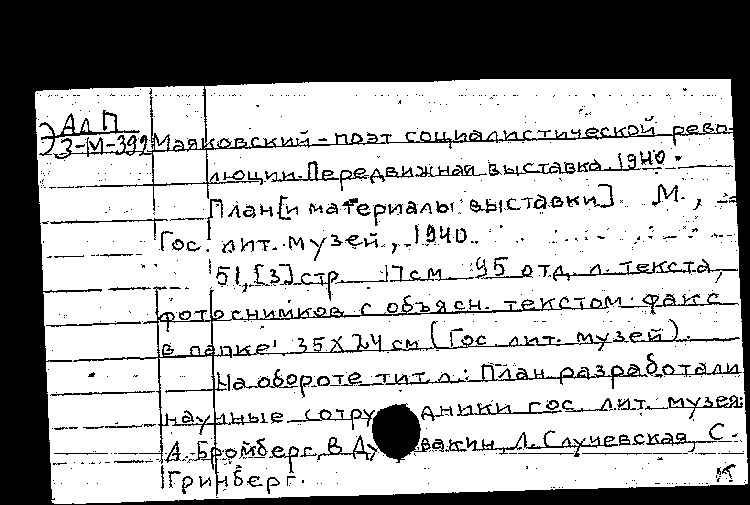 Ал П
Э З-М-399 Маяковский - поэт социалистической рево-
люции. Передвижная выставка. 1940.
План [и материалы выставки]. М.,
Гос. лит. музей, 1940.
51, [3] стр. 17 см. 95 отд. л. текста,
фотоснимков с объясн. текстом факс
в папке 35 х 24 см (Гос. лит. музей).
На обороте тит. л.: План разработали
научные сотрудники гос. лит. музея:
А. Бромберг, В Ду вакин, Л. Случевская, С.
Гринберг.
К